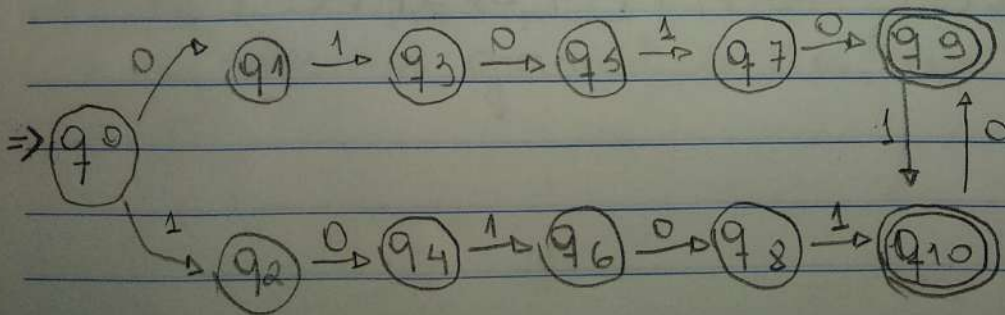 0 q1 1 q3 0 q5 1 q7 0 q9
=> q0 1 0
1 q2 0 q4 1 q6 0 q8 1 q10